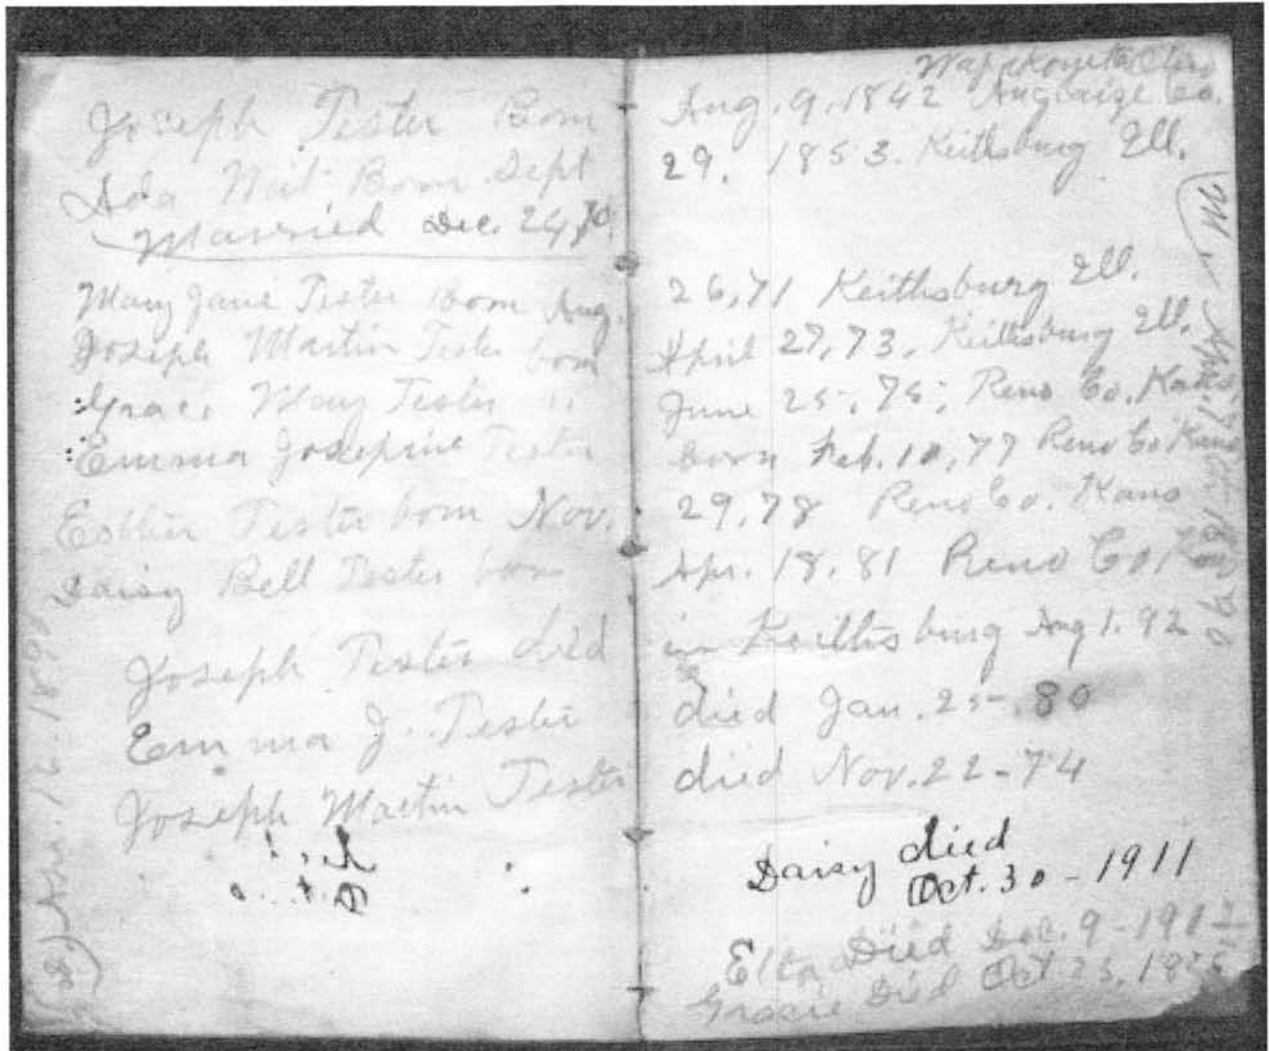 Wapakoneta Ohio
Joseph Tester Born Aug. 9, 1842 Auglaize Co.
Ada Born Sept 29, 1853. Keithsburg Ill.
Married Dec. 24, 70.
Mary Jane Tester Born Aug. 26, 71 Keithsburg Ill.
Joseph Martin Tester born April 27, 73, Keithsburg Ill.
Grace May Tester " June 25, 75, Reno Co. Kans
Emma Josephine Tester born Feb. 10, 77 Reno Co Kans
Esther Tester born Nov. 29, 78 Reno Co. Kans
Daisy Bell Tester born Apr. 18, 81 Reno Co, Kans
Joseph Tester died in Keithsburg Aug 1. 92
Emma J. Tester died Jan. 25-, 80
Joseph Martin Tester died Nov. 22-74
Daisy died
Oct. 30-1911
Died Dec. 9-
Gracie Did Oct 23,